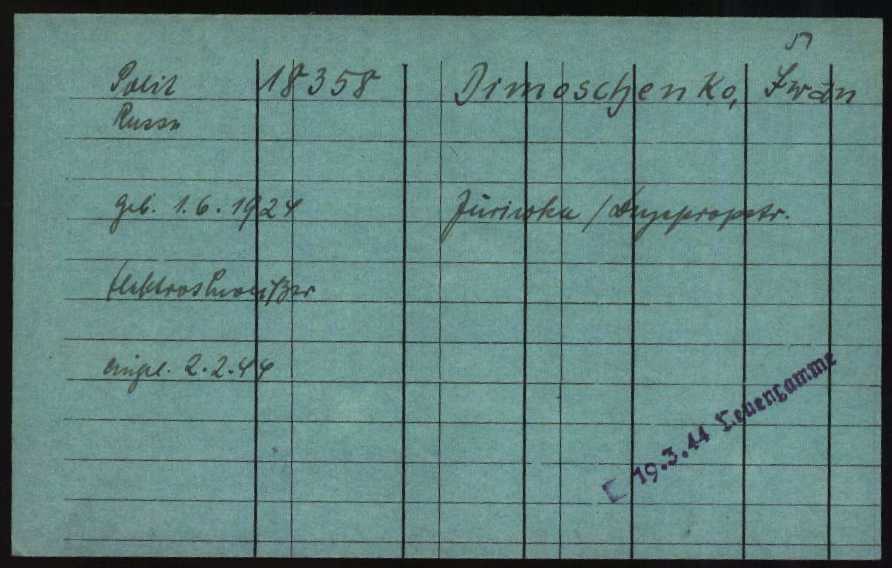 Polit 18358 Dimoschenko, Iwan
Russe
geb. 1.6.1924 Juriwka / Dnjepropetr.
Elektroschweißer
eingel. 2.2.44
19.3.44 Neuengamme